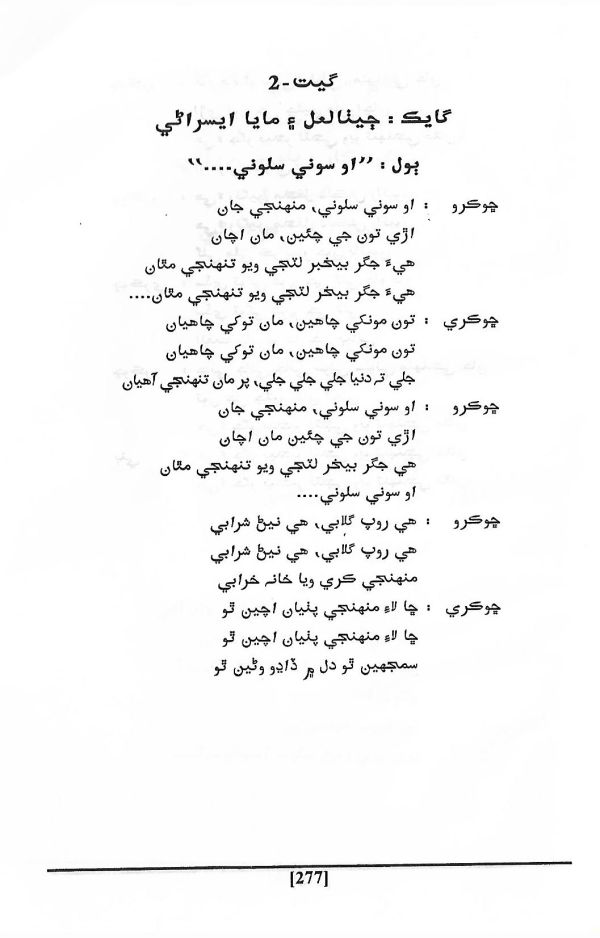 گيت-2
گايڪ : جيٺالعل ۽ مايا ايسراڻي
ٻول : ”او سوني سلوني....“
ڇوڪرو : او سوني سلوني، منهنجي جان
اڙي تون جي چئين، مان اچان
هيءَ جگر بيخبر لٽجي ويو تنهنجي مٿان
هيءَ جگر بيخر لٽجي ويو تنهنجي مٿان....
ڇوڪري : تون مونکي چاهين، مان توکي چاهيان
تون مونکي چاهين، مان توکي چاهيان
جلي ته دنيا جلي جلي جلي، پر مان تنهنجي آهيان
ڇوڪرو : او سوني سلوني، منهنجي جان
اڙي تون جي چئين مان اچان
هي جگر بيخر لٽجي ويو تنهنجي مٿان
او سوني سلوني....
ڇوڪرو : هي روپ گلابي، هي نيڻ شرابي
هي روپ گلابي، هي نيڻ شرابي
منهنجي ڪري ويا خانہ خرابي
ڇوڪري : ڇا لاءِ منهنجي پٺيان اچين ٿو
ڇا لاءِ منهنجي پٺيان اچين ٿو
سمجهين ٿو دل ۾ ڏاڍو وڻين ٿو
[277]